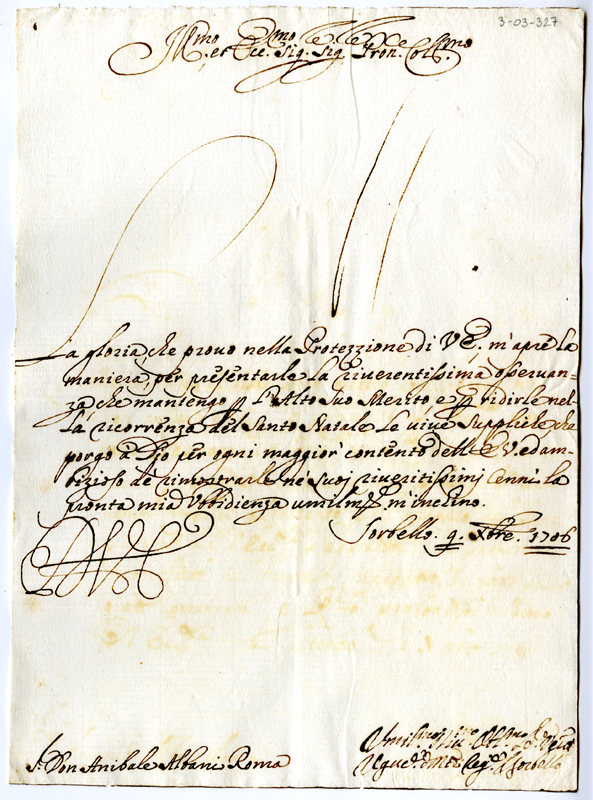 3-03-327
Ill.mo et Ecc.mo Sig.re Sig.re Pron.e Col.mo
La gloria, che provo nella Protezzione di V.E. m'apre la
maniera, per presentarle la riverentissima osservan-
za che mantengo p l'Alto Suo Merito e p ridirle nel-
la ricorrenza del Santo Natale le vive Suppliche che
porgo à Dio per ogni maggior contento dell' E.V. ed am-
bizioso de rimostrarle ne suoi riveritissimi Cenni la
pronta mia Ubbidienza umilm.te m'inchino.
Sorbello. 9. Xbre. 1706
S.r Don Anibale Albani Roma
Umil.mo
Sorbello